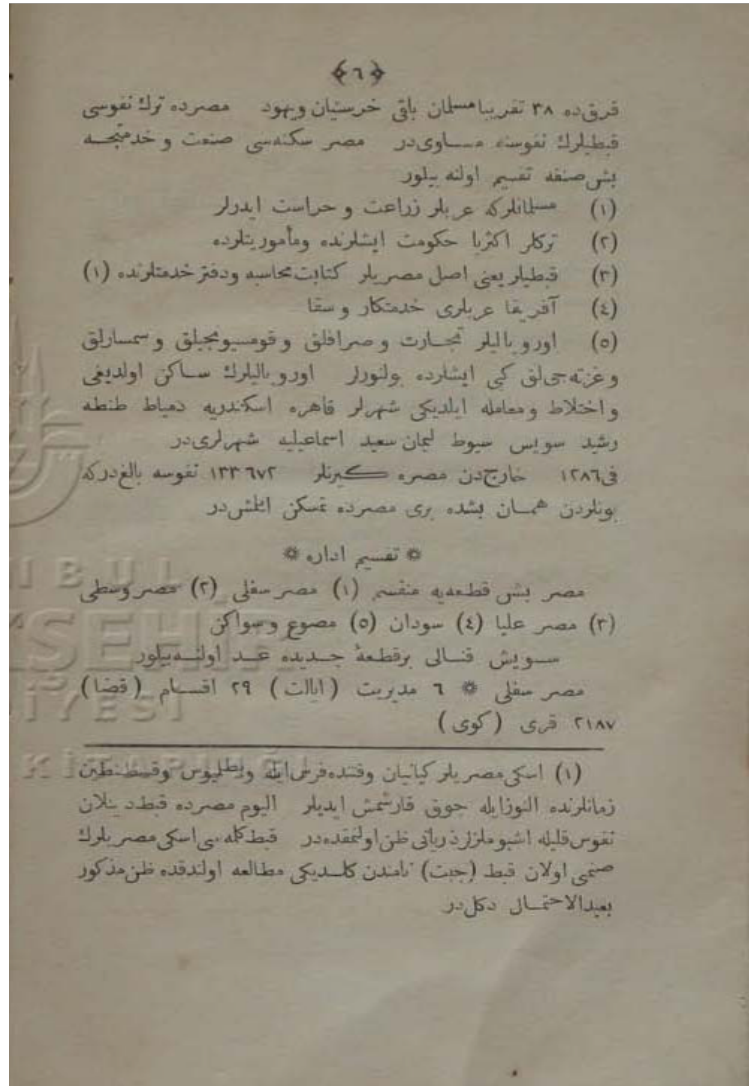 ﴿٦﴾
قرق ده ٣٨ تقريبا مسلمان باقى خرستيان ويهود مصرده ترك نفوسى
قبطيلرك نفوسنه مساوى در مصر سكنه سى صنعت و خدمتجه
بش صنفه تقسيم اولنه بيلور
(١) مسلمانلركه عربلر زراعت و حراست ايدرلر
(٢) تركلر اكثريا حكومت ايشلرنده ومأموريتلرده
(٣) قبطيلر يعنى اصل مصريلر كتابت محاسبه ودفتر خدمتلرنده (١)
(٤) آفريقا عربلرى خدمتكار وسقا
(٥) اوروپاليلر تجارت وصرافلق وقومسيونجيلق وسمسارلق
وغزته جى لق كبى ايشلرده بولنورلر اوروپاليلرك ساكن اولديغى
واختلاط ومعامله ايلديكى شهرلر قاهره اسكندريه دمياط طنطه
رشيد سويس سيوط ليمان سعيد اسماعيليه شهرلرى در
فى ١٢٨٦ خارج دن مصره كيرنلر ١٣٣٦٧٢ نفوسه بالغ دركه
بونلردن همان بشده برى مصرده تمكن ايتمش در
❊ تقسيم اداره ❊
مصر بش قطعه يه منقسم (١) مصر سفلى (٢) مصر وسطى
(٣) مصر عليا (٤) سودان (٥) مصوع وسواكن
سويش قنالى برقطعۀ جديده عد اولنه بيلور
مصر سفلى ❊ ٦ مديريت (ايالت) ٢٩ اقسام (قضا)
٢١٨٧ قرى (كوى)
(١) اسكى مصريلر كيانيان وقتنده فرس ايله وبطلميوس وقسطنطين
زمانلرنده النوز ايله چوق قارشمش ايديلر اليوم مصرده قبط دينلان
نفوس قليله اشبو ملزلر ذرياتى ظن اولنمقده در قبط كله سى اسكى مصريلرك
صنمى اولان قبط (جبت) نامندن كلديكى مطالعه اولندقده ظن مذكور
بعيد الاحتمال دكل در
ISTANBUL